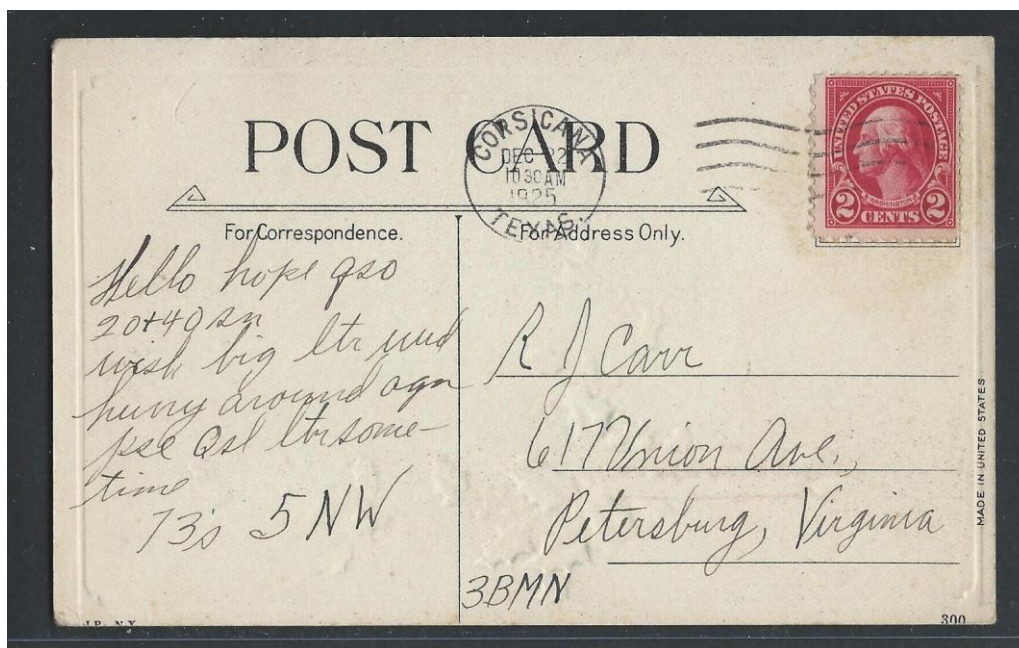 POST CARD
CORSICANA
DEC 22
10 30 AM
1925
TEXAS.
UNITED STATES POSTAGE
WASHINGTON
2 CENTS 2
For Correspondence.
For Address Only.
Hello hope qso
20+40 sn
wish big ltr wud
hurry around agn
pse Qsl ltr some-
time
73's 5NW
R J Carr
617 Union Ave.,
Petersburg, Virginia
3BMN
MADE IN UNITED STATES
J.P. N.Y.
300